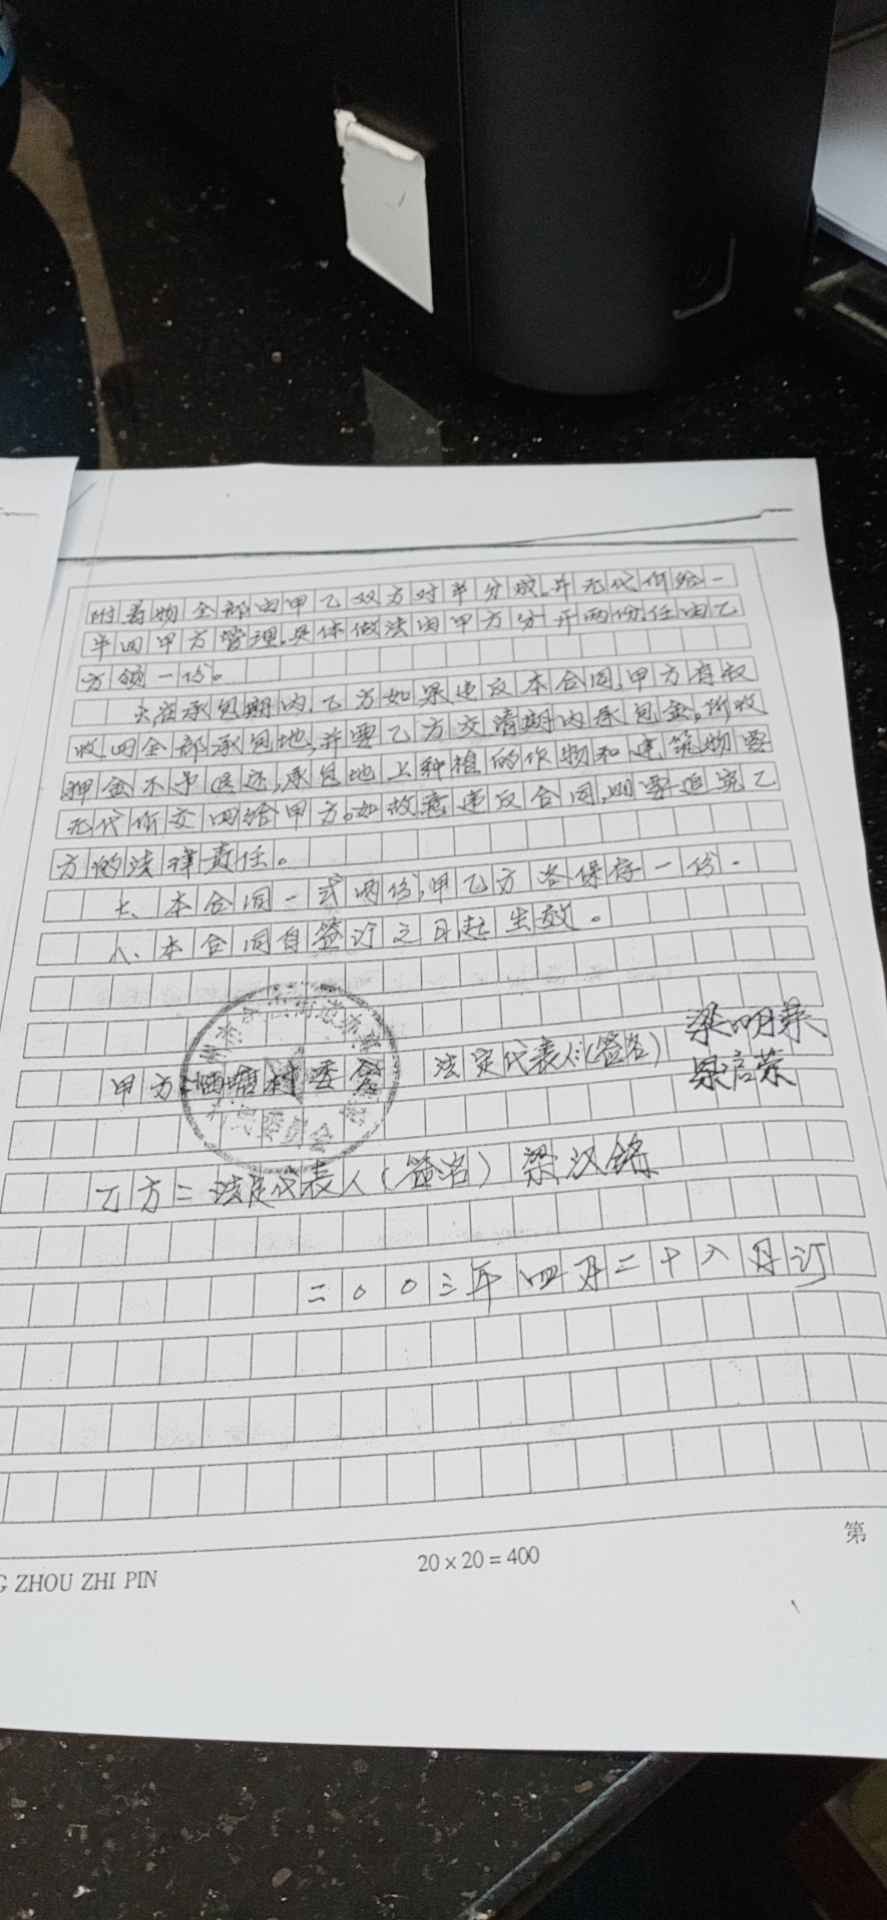 附着物全部由甲乙双方对半分成。并无代价给一
半回甲方管理。具体做法由甲方分开两份任由乙
方领一份。
六、在承包期内，乙方如果违反本合同，甲方有权
收回全部承包地，并要乙方交清期内承包金，所收
押金不予退还，承包地上种植的作物和建筑物要
无代价交回给甲方。如故意违反合同，则要追究乙
方的法律责任。
七、本合同一式两份，甲乙方各保存一份。
八、本合同自签订之日起生效。
甲方：塘村委会 法定代表人：（签名） 梁明
梁启荣
乙方：法定代表人（签名） 梁汉铭
二00三年四月二十八日订
ZHOU ZHI PIN
20×20=400
第